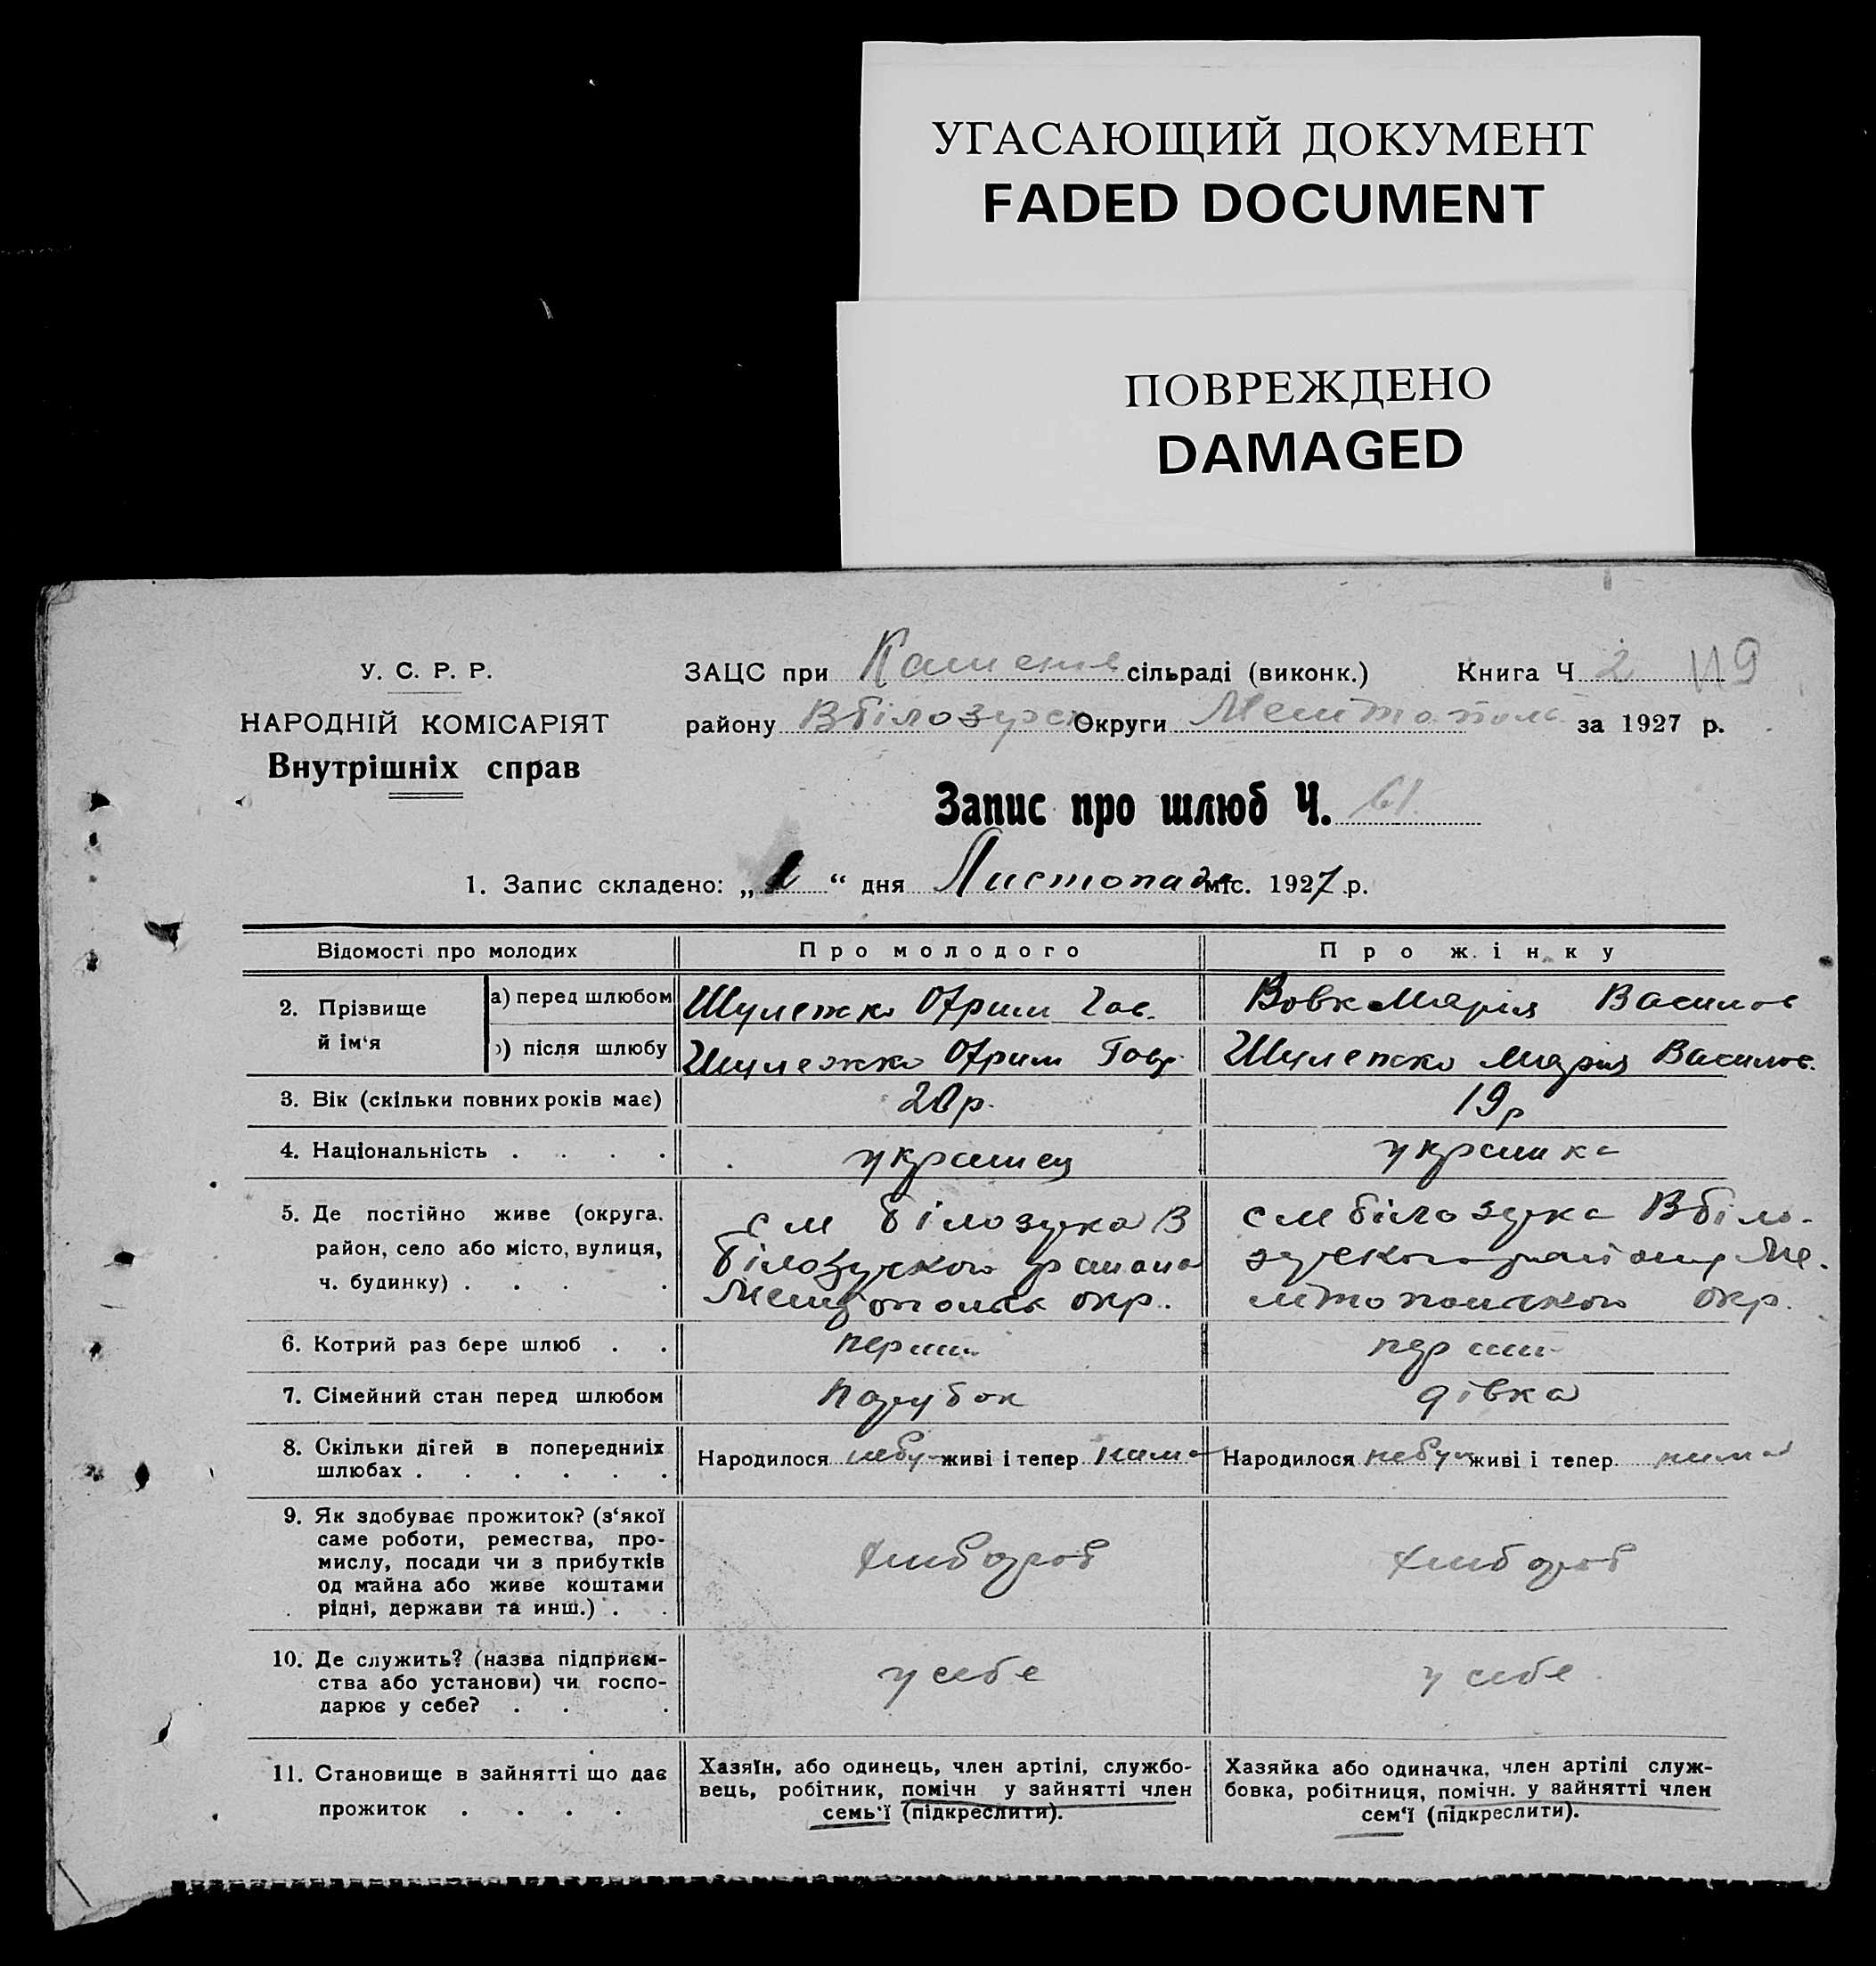 УГАСАЮЩИЙ ДОКУМЕНТ
FADED DOCUMENT
ПОВРЕЖДЕНО
DAMAGED
У. С. Р. Р.
НАРОДНІЙ КОМІСАРІЯТ
Внутрішніх справ
ЗАЦС при сільраді (виконк.) Книга Ч 2 119
району Вбілозерск Округи за 1927 р.
Запис про шлюб Ч. 61
1. Запис складено: „ “ дня Листопада міс. 1927 р.
Відомості про молодих Про молодого Про жінку
2. Прізвище й ім‘я
а) перед шлюбом Шулежко Вовк Марія Василов
б) після шлюбу Шулежко Гавр. Шулежко Марія Василов.
3. Вік (скільки повних років має) 20р. 19р
4. Національність . . . . украинец украинка
5. Де постійно живе (округа. район, село або місто, вулиця, ч. будинку) . . . .
см білозерка В
білозерского района
окр..
см білозерка Вбіло-
зерского району Ме-
литопольского окр.
6. Котрий раз бере шлюб . . перший перший
7. Сімейний стан перед шлюбом парубок дівка
8. Скільки дітей в попередниїх шлюбах . . . . . .
Народилося небуло живі і тепер нима
Народилося небуло живі і тепер нима
9. Як здобуває прожиток? (з‘якої
саме роботи, ремества, про-
мислу, посади чи з прибутків
од майна або живе коштами
рідні, держави та инш.) . .
хлибороб хлибороб
10. Де служить? (назва підприєм-
ства або установи) чи госпо-
дарює у себе? . . .
у себе у себе
11. Становище в зайнятті що дає
прожиток . . . .
Хазяїн, або одинець, член артілі, службо-
вець, робітник, помічн у зайнятті член
семь‘ї (підкреслити).
Хазяйка або одиначка, член артілі служ-
бовка, робітниця, помічн. у зайнятті член
сем‘ї (підкреслити).